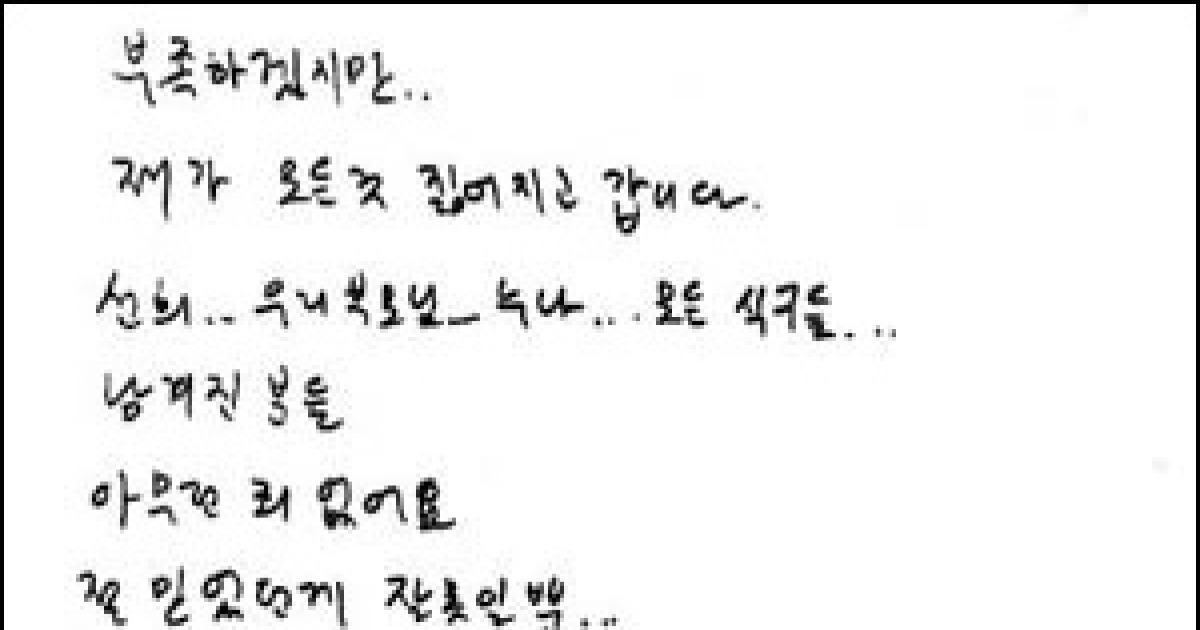 부족하겠지만..
제가 모든것 짊어지고 갑니다.
선희.. 우리 부모님... 누나... 모든 식구들...
남겨진 분들
아무런 죄 없어요
절 믿었던게 잘못일뿐...